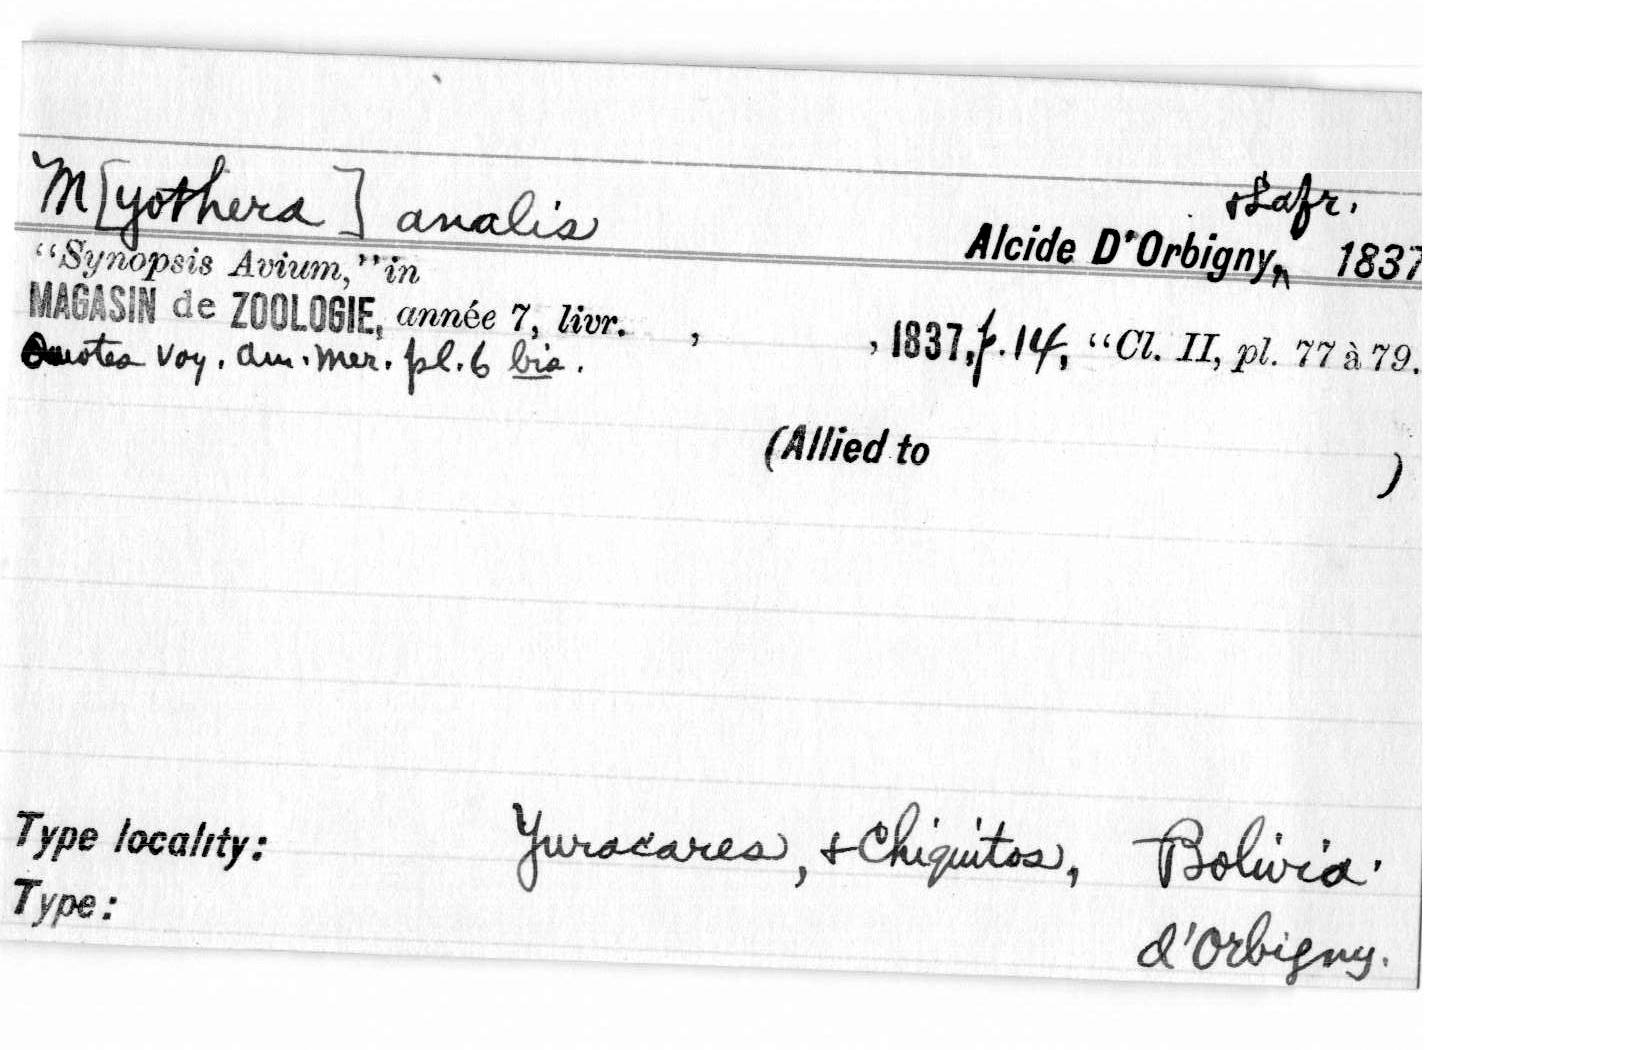 M[yothera] analis
Alcide D'Orbigny, & Lafr. 1837
"Synopsis Avium," in
MAGASIN de ZOOLOGIE, année 7, livr. , , 1837, p. 14, "Cl. II, pl. 77 à 79.
Quotes Voy. Am. Mer. pl. 6 bis.
(Allied to )
Type locality: Yuracares, & Chiquitos, Bolivia.
Type: d'Orbigny.